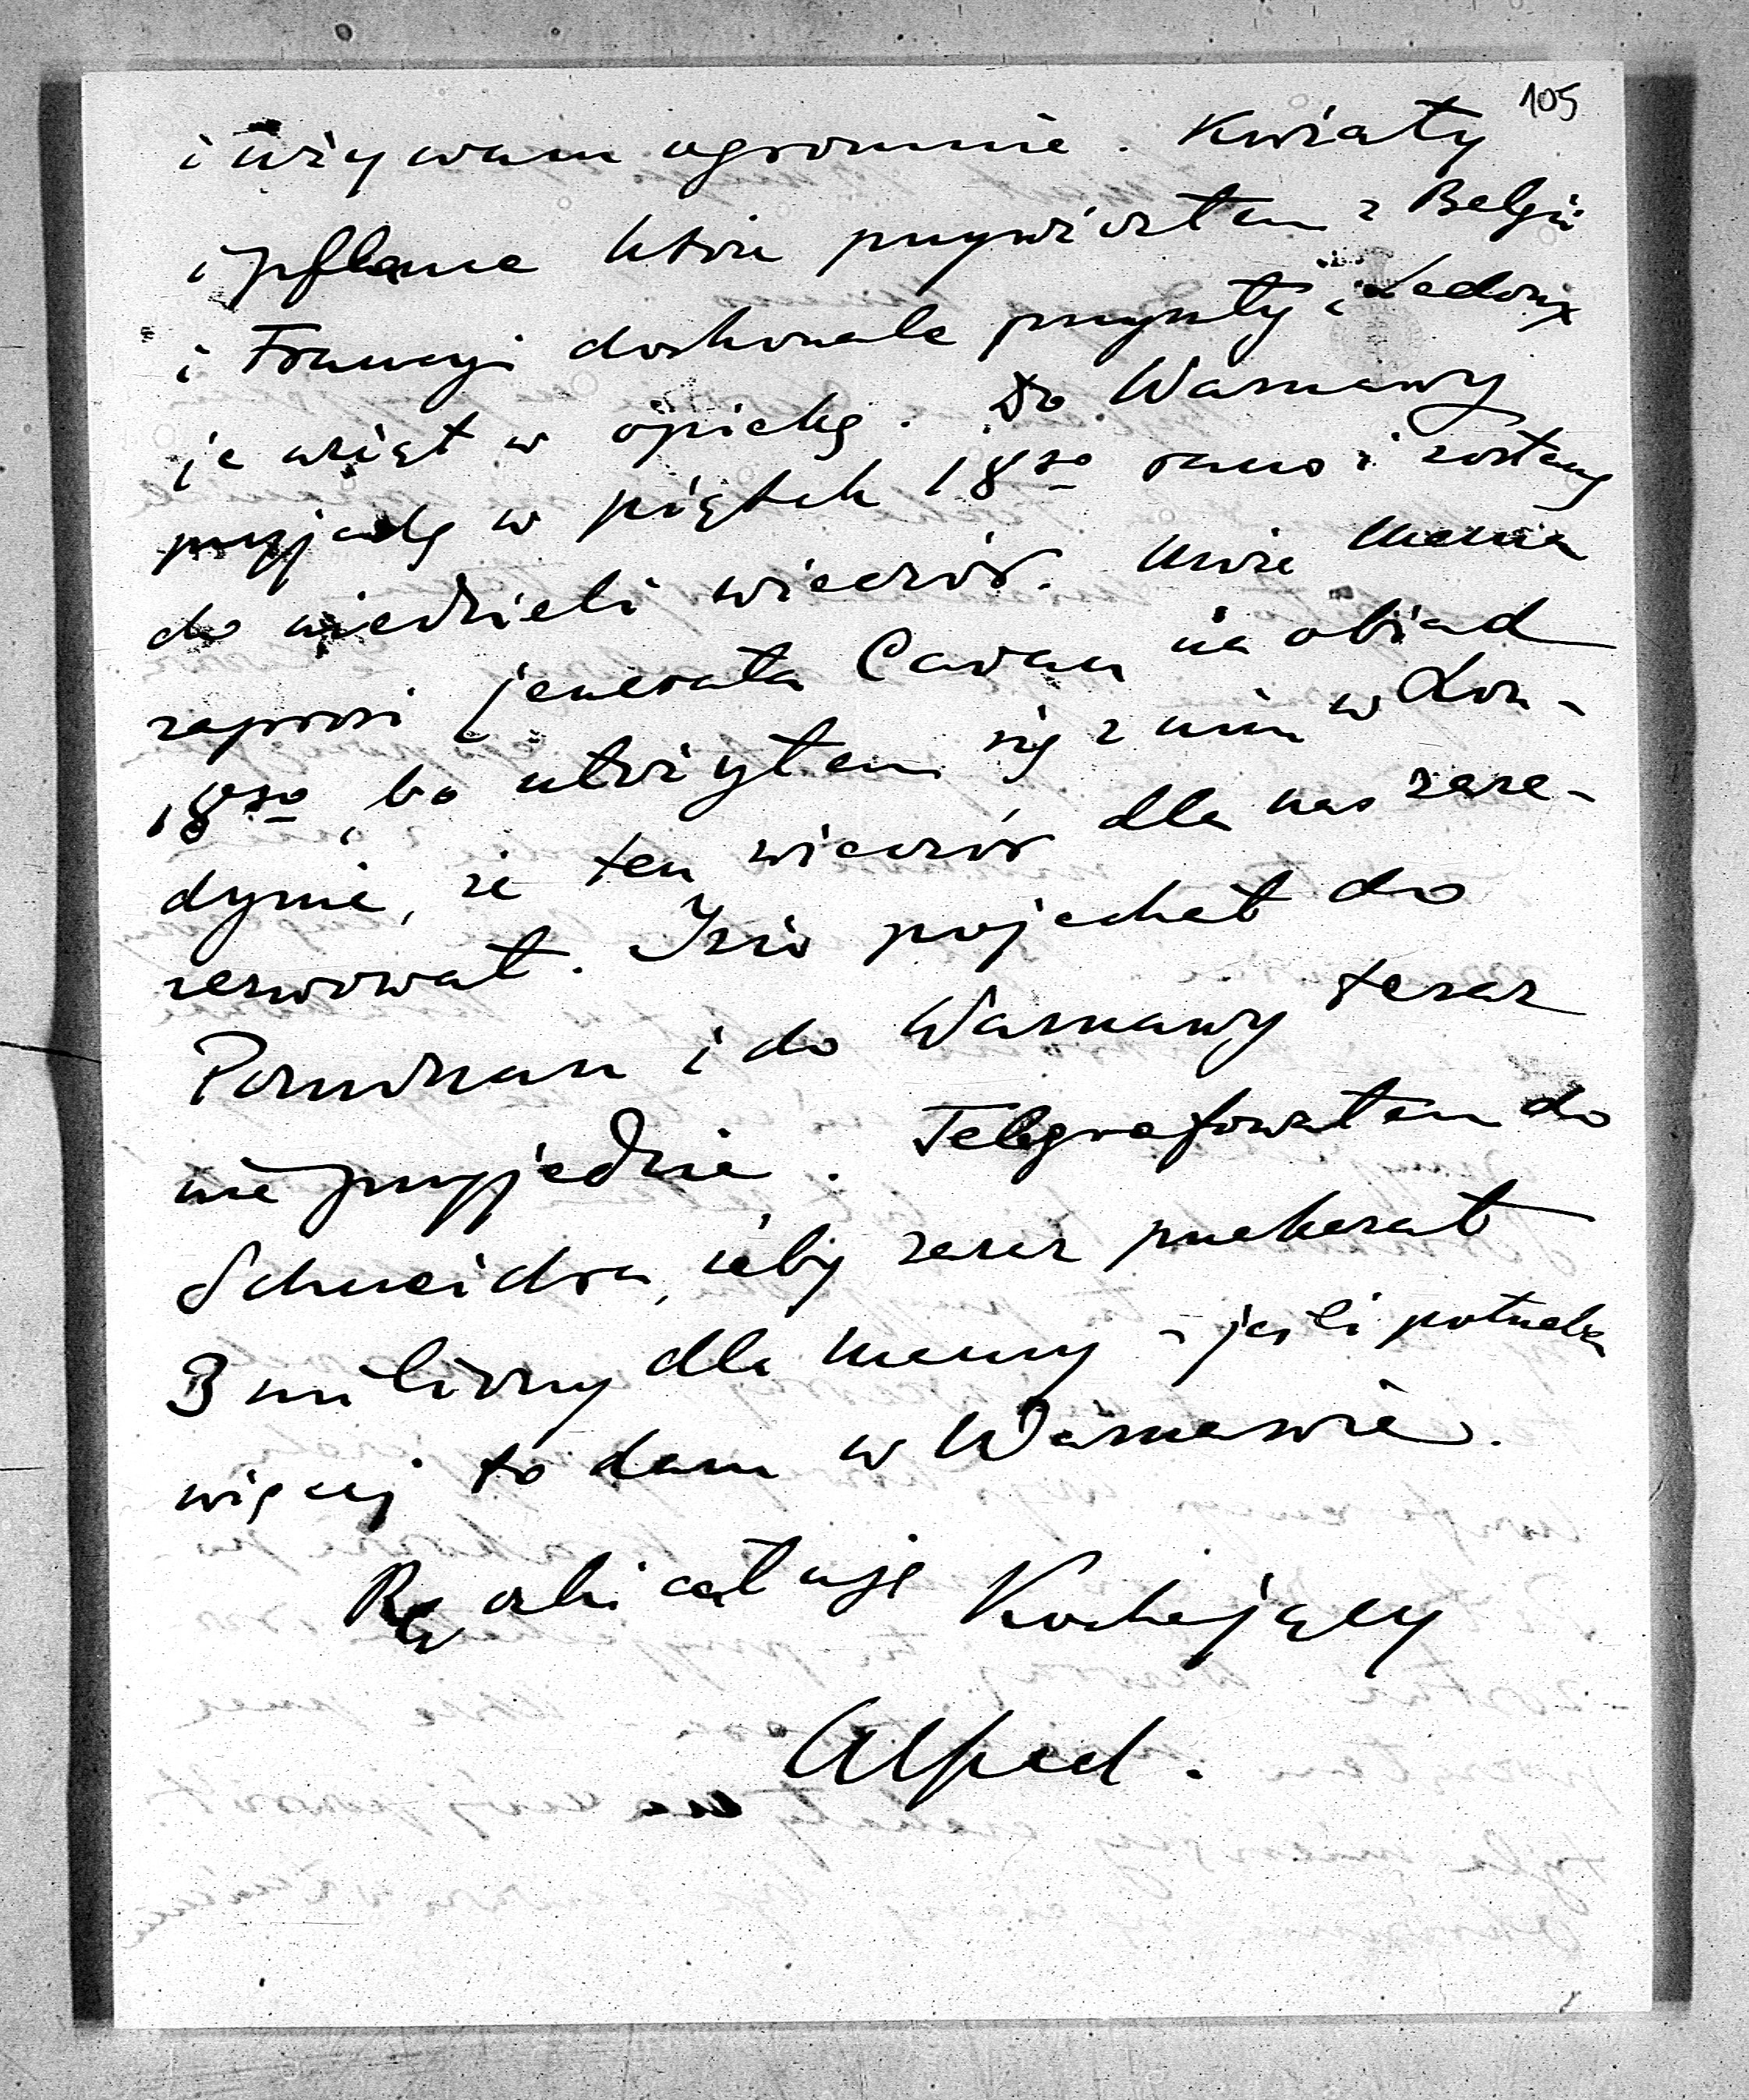 105
i używam ogromnie. Kwiaty
i pflance które przywiozłem z Belgii
i Francyi doskonale przyszły i Ledoux
je wziął w opiekę. Do Warszawy
przyjadę w piątek 18go rano i zostanę
do niedzieli wieczór. Może Mama
zaprosi jenerała Cavan na obiad
18go, bo ułożyłem się z nim w Lon-
dynie, że ten wieczór dla nas zare-
zerwował. Izio pojechał do
Poznania i do Warszawy teraz
nie przyjedzie. Telegrafowałem do
Schneidra, żeby zaraz przekazał
3 miliony dla Mamy - jeśli potrzeba
więcej to dam w Warszawie.
Rączki całuję Kochający
Alfred.